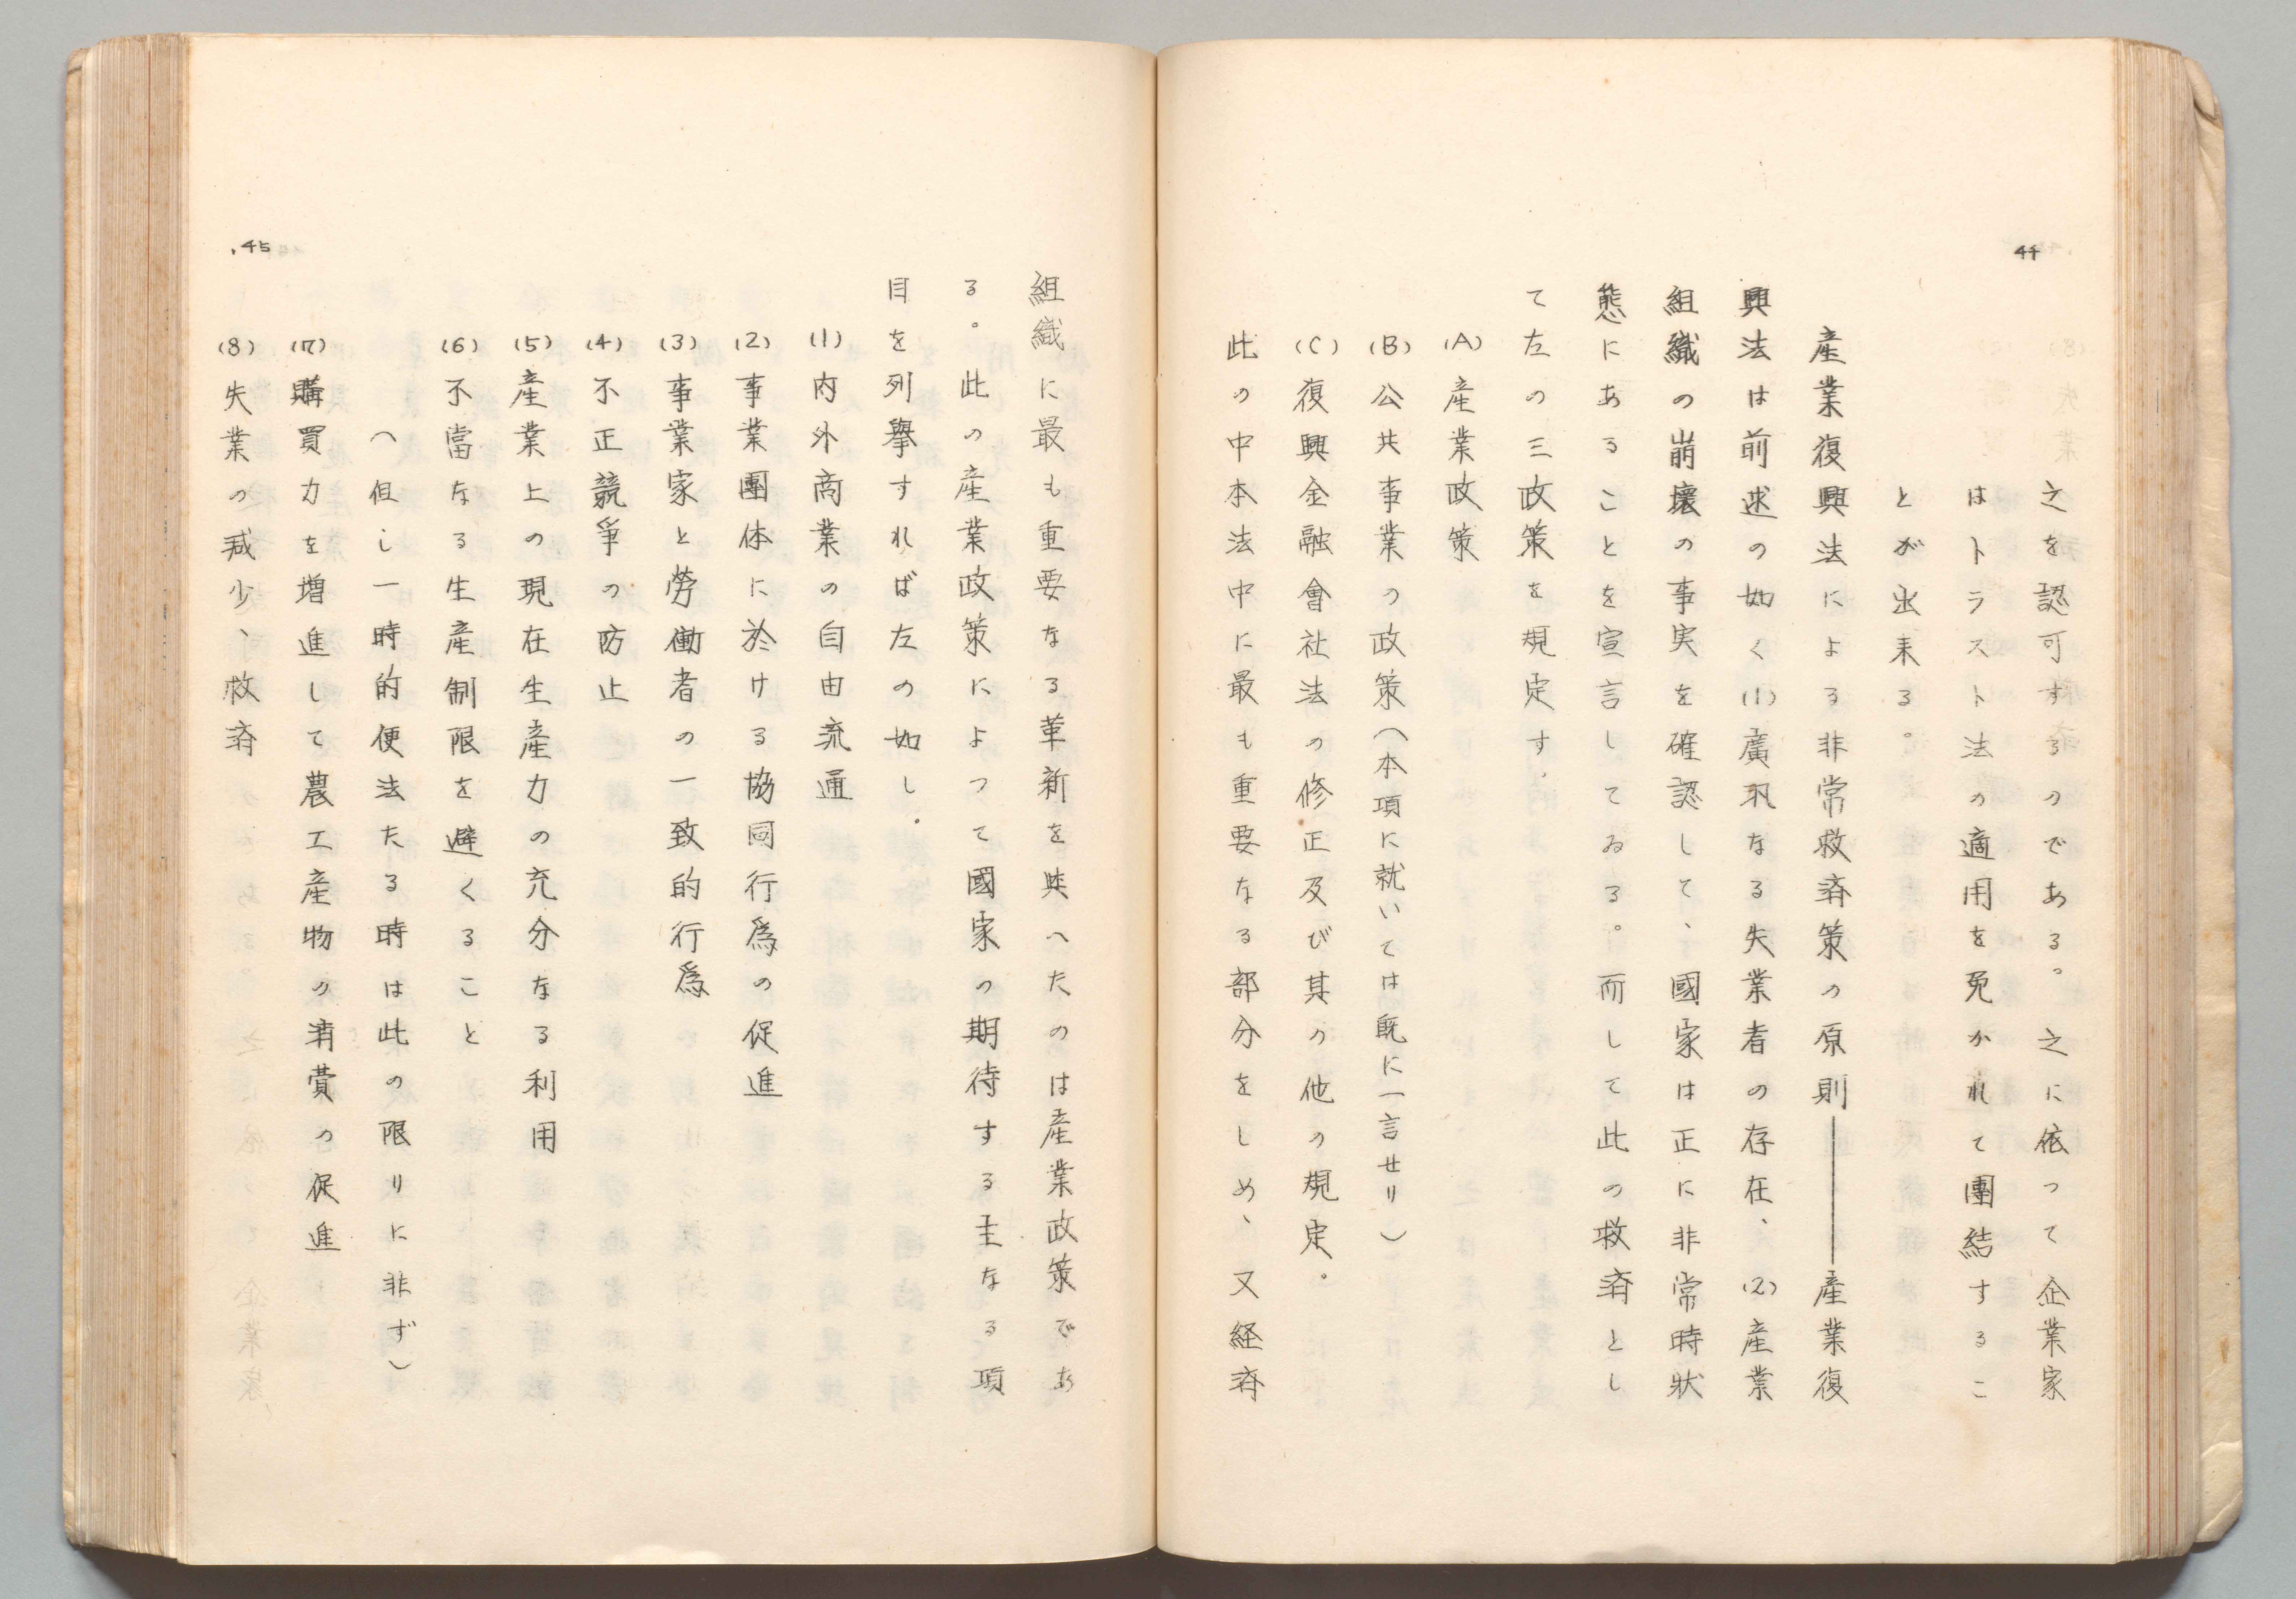 44
之を認可するのである。之に依って企業家
はトラスト法の適用を免かれて團結するこ
とが出来る。
産業復興法による非常救済策の原則───産業復
興法は前述の如く(1)廣汎なる失業者の存在、(2)産業
組織の崩壊の事実を確認して、國家は正に非常時狀
態にあることを宣言してゐる。而して此の救済とし
て左の三政策を規定す。
(A)産業政策
(B)公共事業の政策(本項に就いては既に一言せり)
(C)復興金融會社法の修正及び其の他の規定。
此の中本法中に最も重要なる部分をしめ、又経済
組織に最も重要なる革新を與へたのは産業政策であ
る。此の産業政策によつて國家の期待する主なる項
目を列擧すれば左の如し。
(1)内外商業の自由流通
(2)事業團体に於ける協同行爲の促進
(3)事業家と勞働者の一致的行爲
(4)不正競爭の防止
(5)産業上の現在生産力の充分なる利用
(6)不當なる生産制限を避くること
(但し一時的便法たる時は此の限りに非ず)
(7)購買力を増進して農工産物の消費の促進
(8)失業の減少、救済
.45